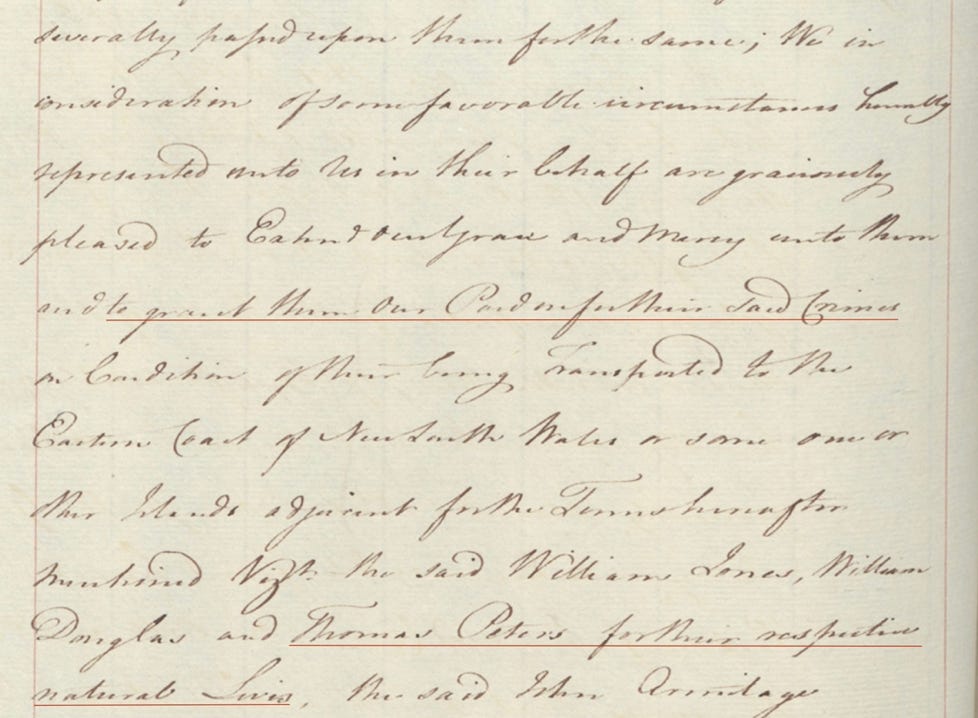 severally passed upon them for the same; We in
consideration of some favorable circumstances humbly
represented unto Us in their behalf are graciously
pleased to Extend our Grace and Mercy unto them
and to grant them Our Pardon for their said Crimes
on Condition of their being Transported to the
Eastern Coast of New South Wales or some one or
other Islands adjacent for the Terms hereafter
mentioned Vizt. the said William Jones, William
Douglas and Thomas Peters for their respective
natural Lives, the said John Armitage